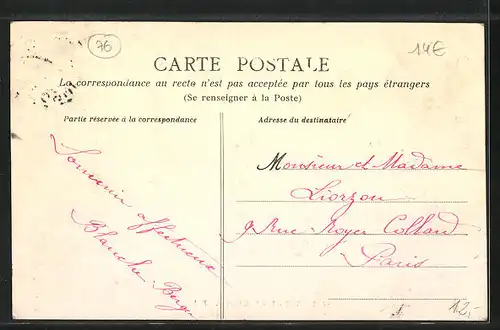 76
14€
CARTE POSTALE
La correspondance au recto n'est pas acceptée par tous les pays étrangers
(Se renseigner à la Poste)
Partie réservée à la correspondance
Adresse du destinataire
Souvenir affectueux
Blanche
Monsieur et Madame
Liorzou
9 Rue Royer Collard
Paris
12,-